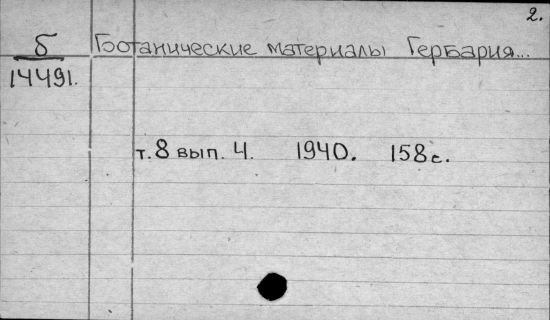 2.
Б Ботанические материалы Гербария...
14491.
т. 8 вып. 4. 1940. 158 с.